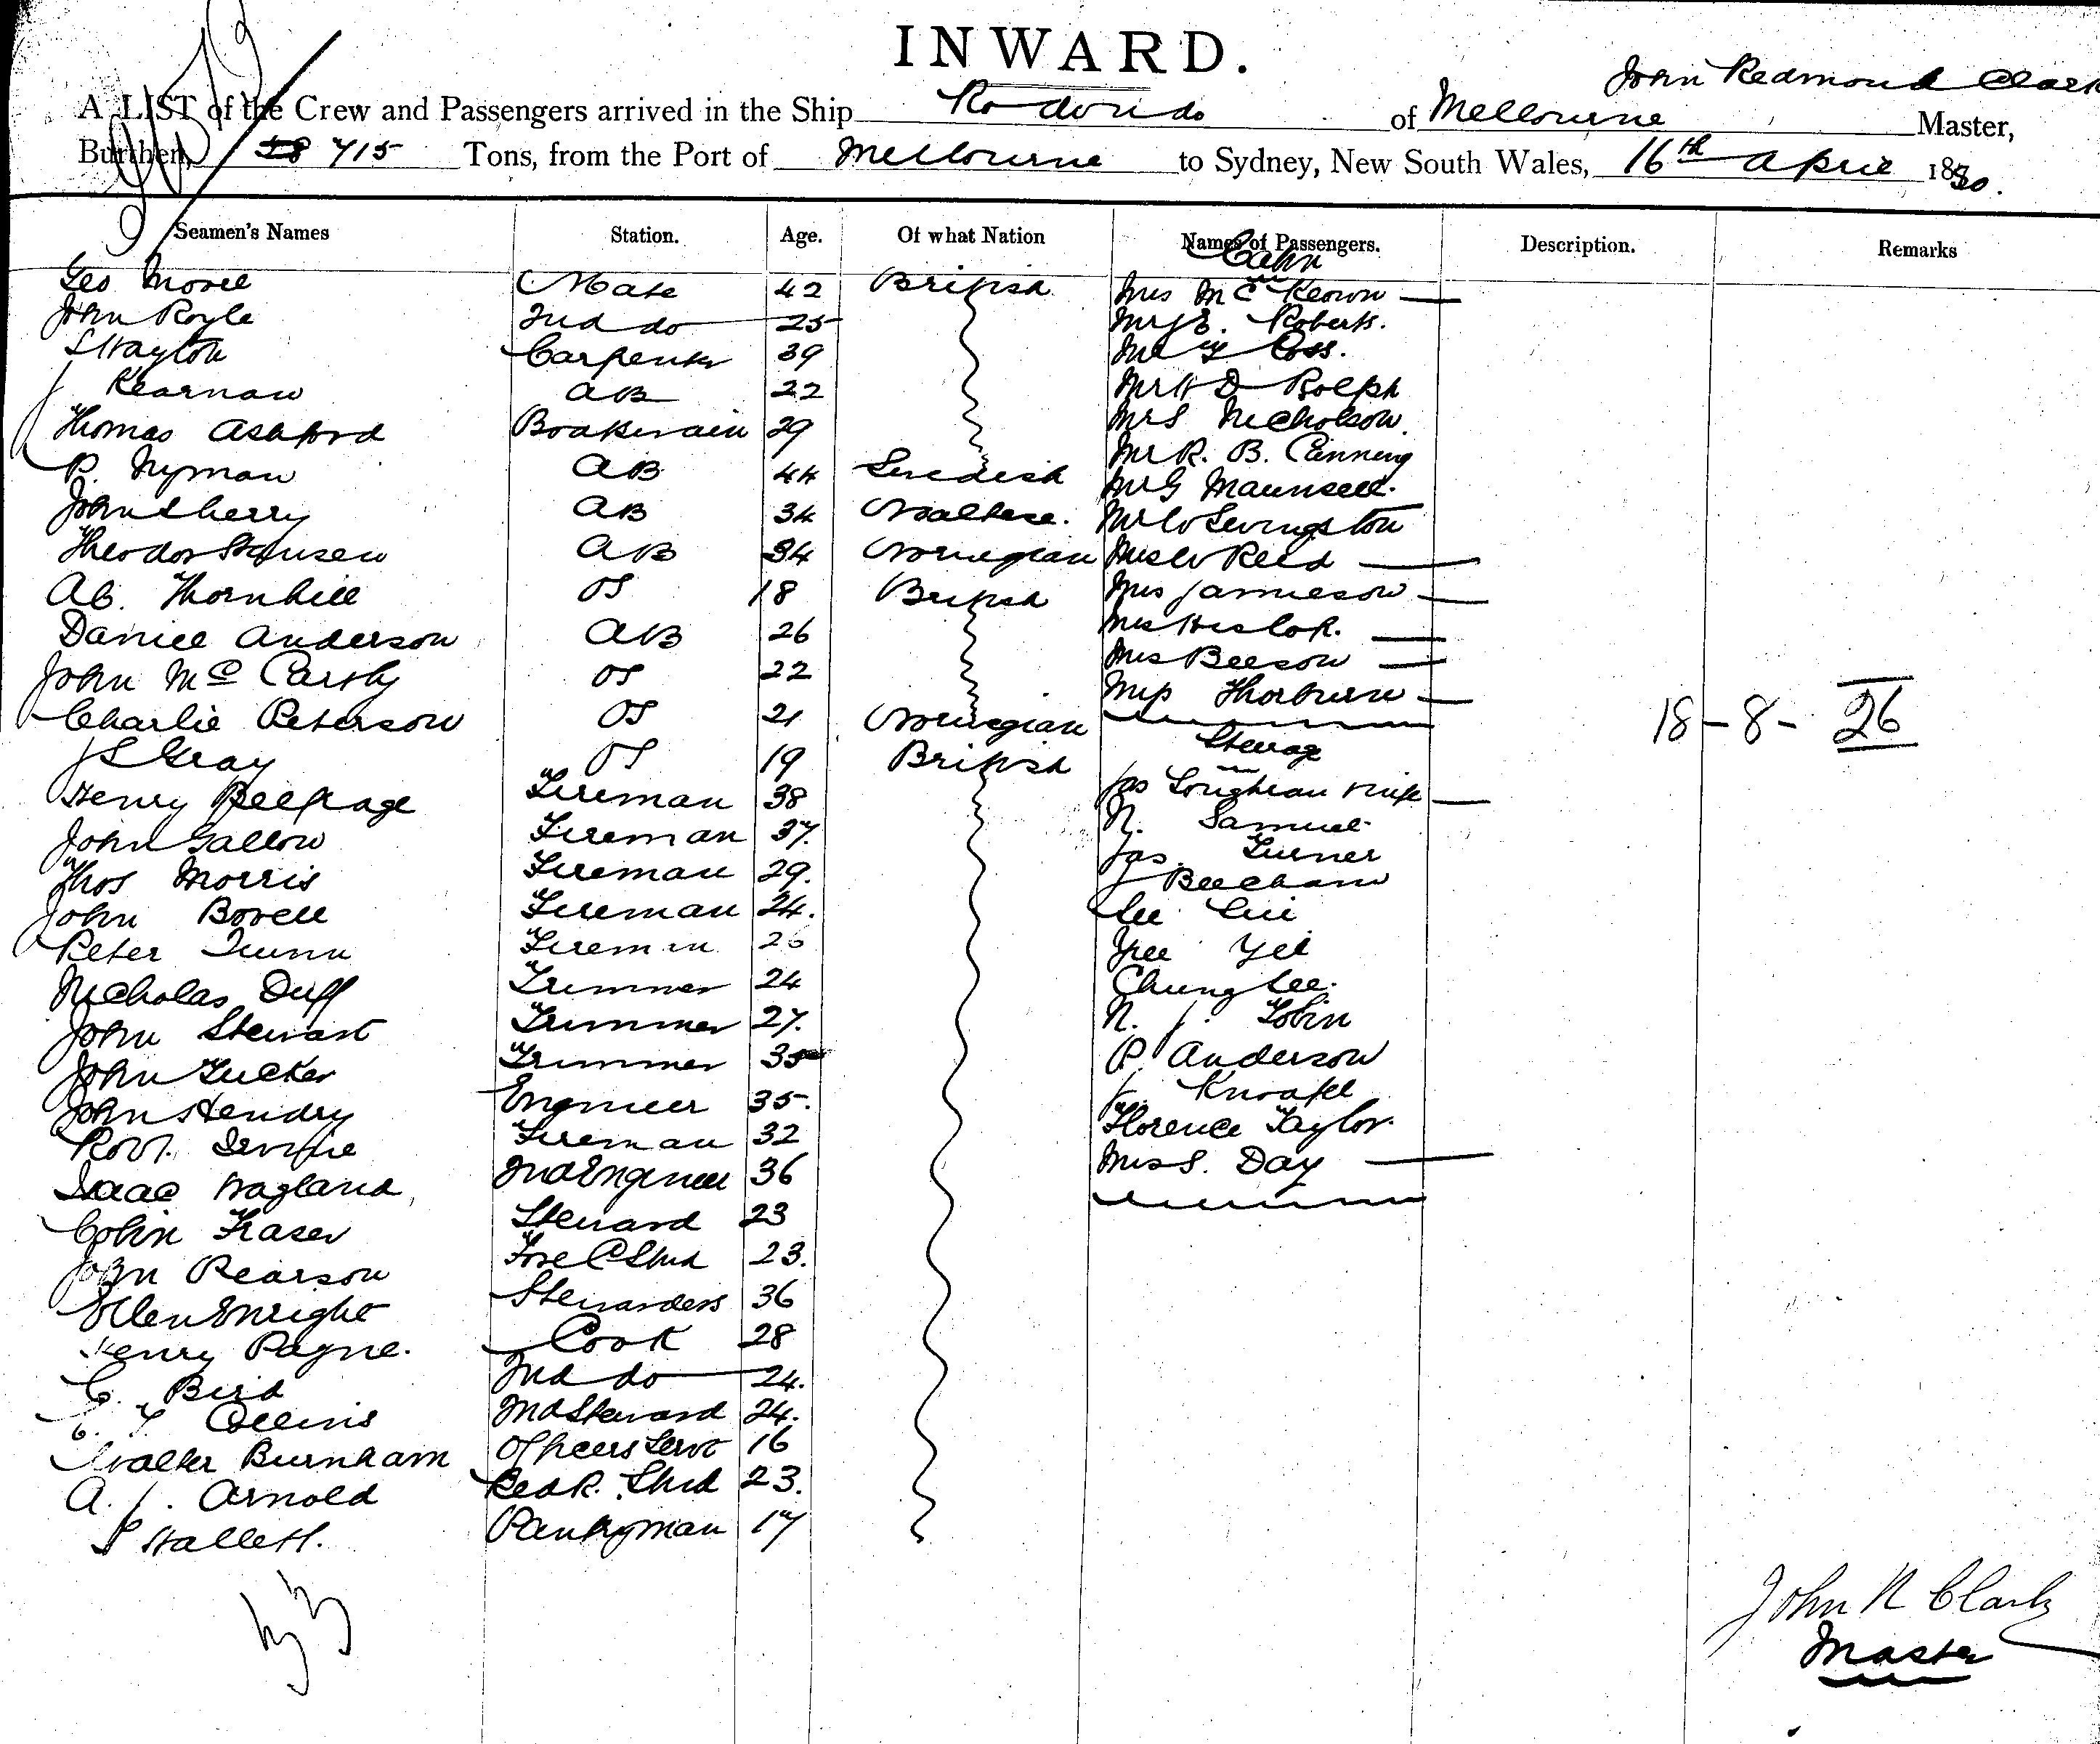 INWARD.
John Redmond Clark
A LIST of the Crew and Passengers arrived in the Ship Rodondo of Melbourne Master,
Burthen, 715 Tons, from the Port of Melbourne to Sydney, New South Wales, 16th April 1890.
Seamen's Names Station. Age. Of what Nation Names of Passengers. Description. Remarks
Cabin
Geo Morell Mate 42 British Mrs McKeown
John Royle 2nd do 25 Mr E. Roberts.
Hayton Carpenter 39 Mr Coss.
J Kearnan AB 22 Mr H D Rolph
Thomas Ashford Boatswain 29 Mrs Nicholson.
P. Nyman AB 44 Swedish Mr R. B. Canning
John Sherry AB 34 Maltese. Mr G Maunsell.
Theodor Hansen AB 34 Norwegian Mr W Levingston
Ab. Thornhill OS 18 British Miss W Reed
Daniel Anderson AB 26 Mrs Jamieson
John McCarthy OS 22 Mrs Heslop.
Charlie Peterson OS 21 Norwegian Mrs Beeson
J S Gray OS 19 British Miss Thorburn
18-8-26
Steerage
Henry Belfrage Fireman 38 Jas Loughean wife
John Gallow Fireman 37. N. Samuel
Thos Morris Fireman 29. Jas. Turner
John Bovell Fireman 24. J Beecham
Peter Quinn Fireman 26 Lee Lui
Nicholas Duff Trimmer 24 Yee Yee
John Stewart Trimmer 27. Chung Lee.
John Tucker Trimmer 35 N. J. Tobin
John Hendry Engineer 35. P. Anderson
Robt. Irvine Fireman 32 J. Knoakl
Isaac Wagland 2nd Engineer 36 Florence Taylor.
Colin Fraser Steward 23 Miss S. Day
John Pearson Fore C Stwd 23.
Ellen Enright Stewardess 36
Henry Payne. Cook 28
C. Bird 2nd do 24.
Collins 2nd Steward 24.
Walter Burnham Officers Servt 16
A. J. Arnold Bed R. Stwd 23.
S Hallett. Pantryman 17
33
John R Clark
Master